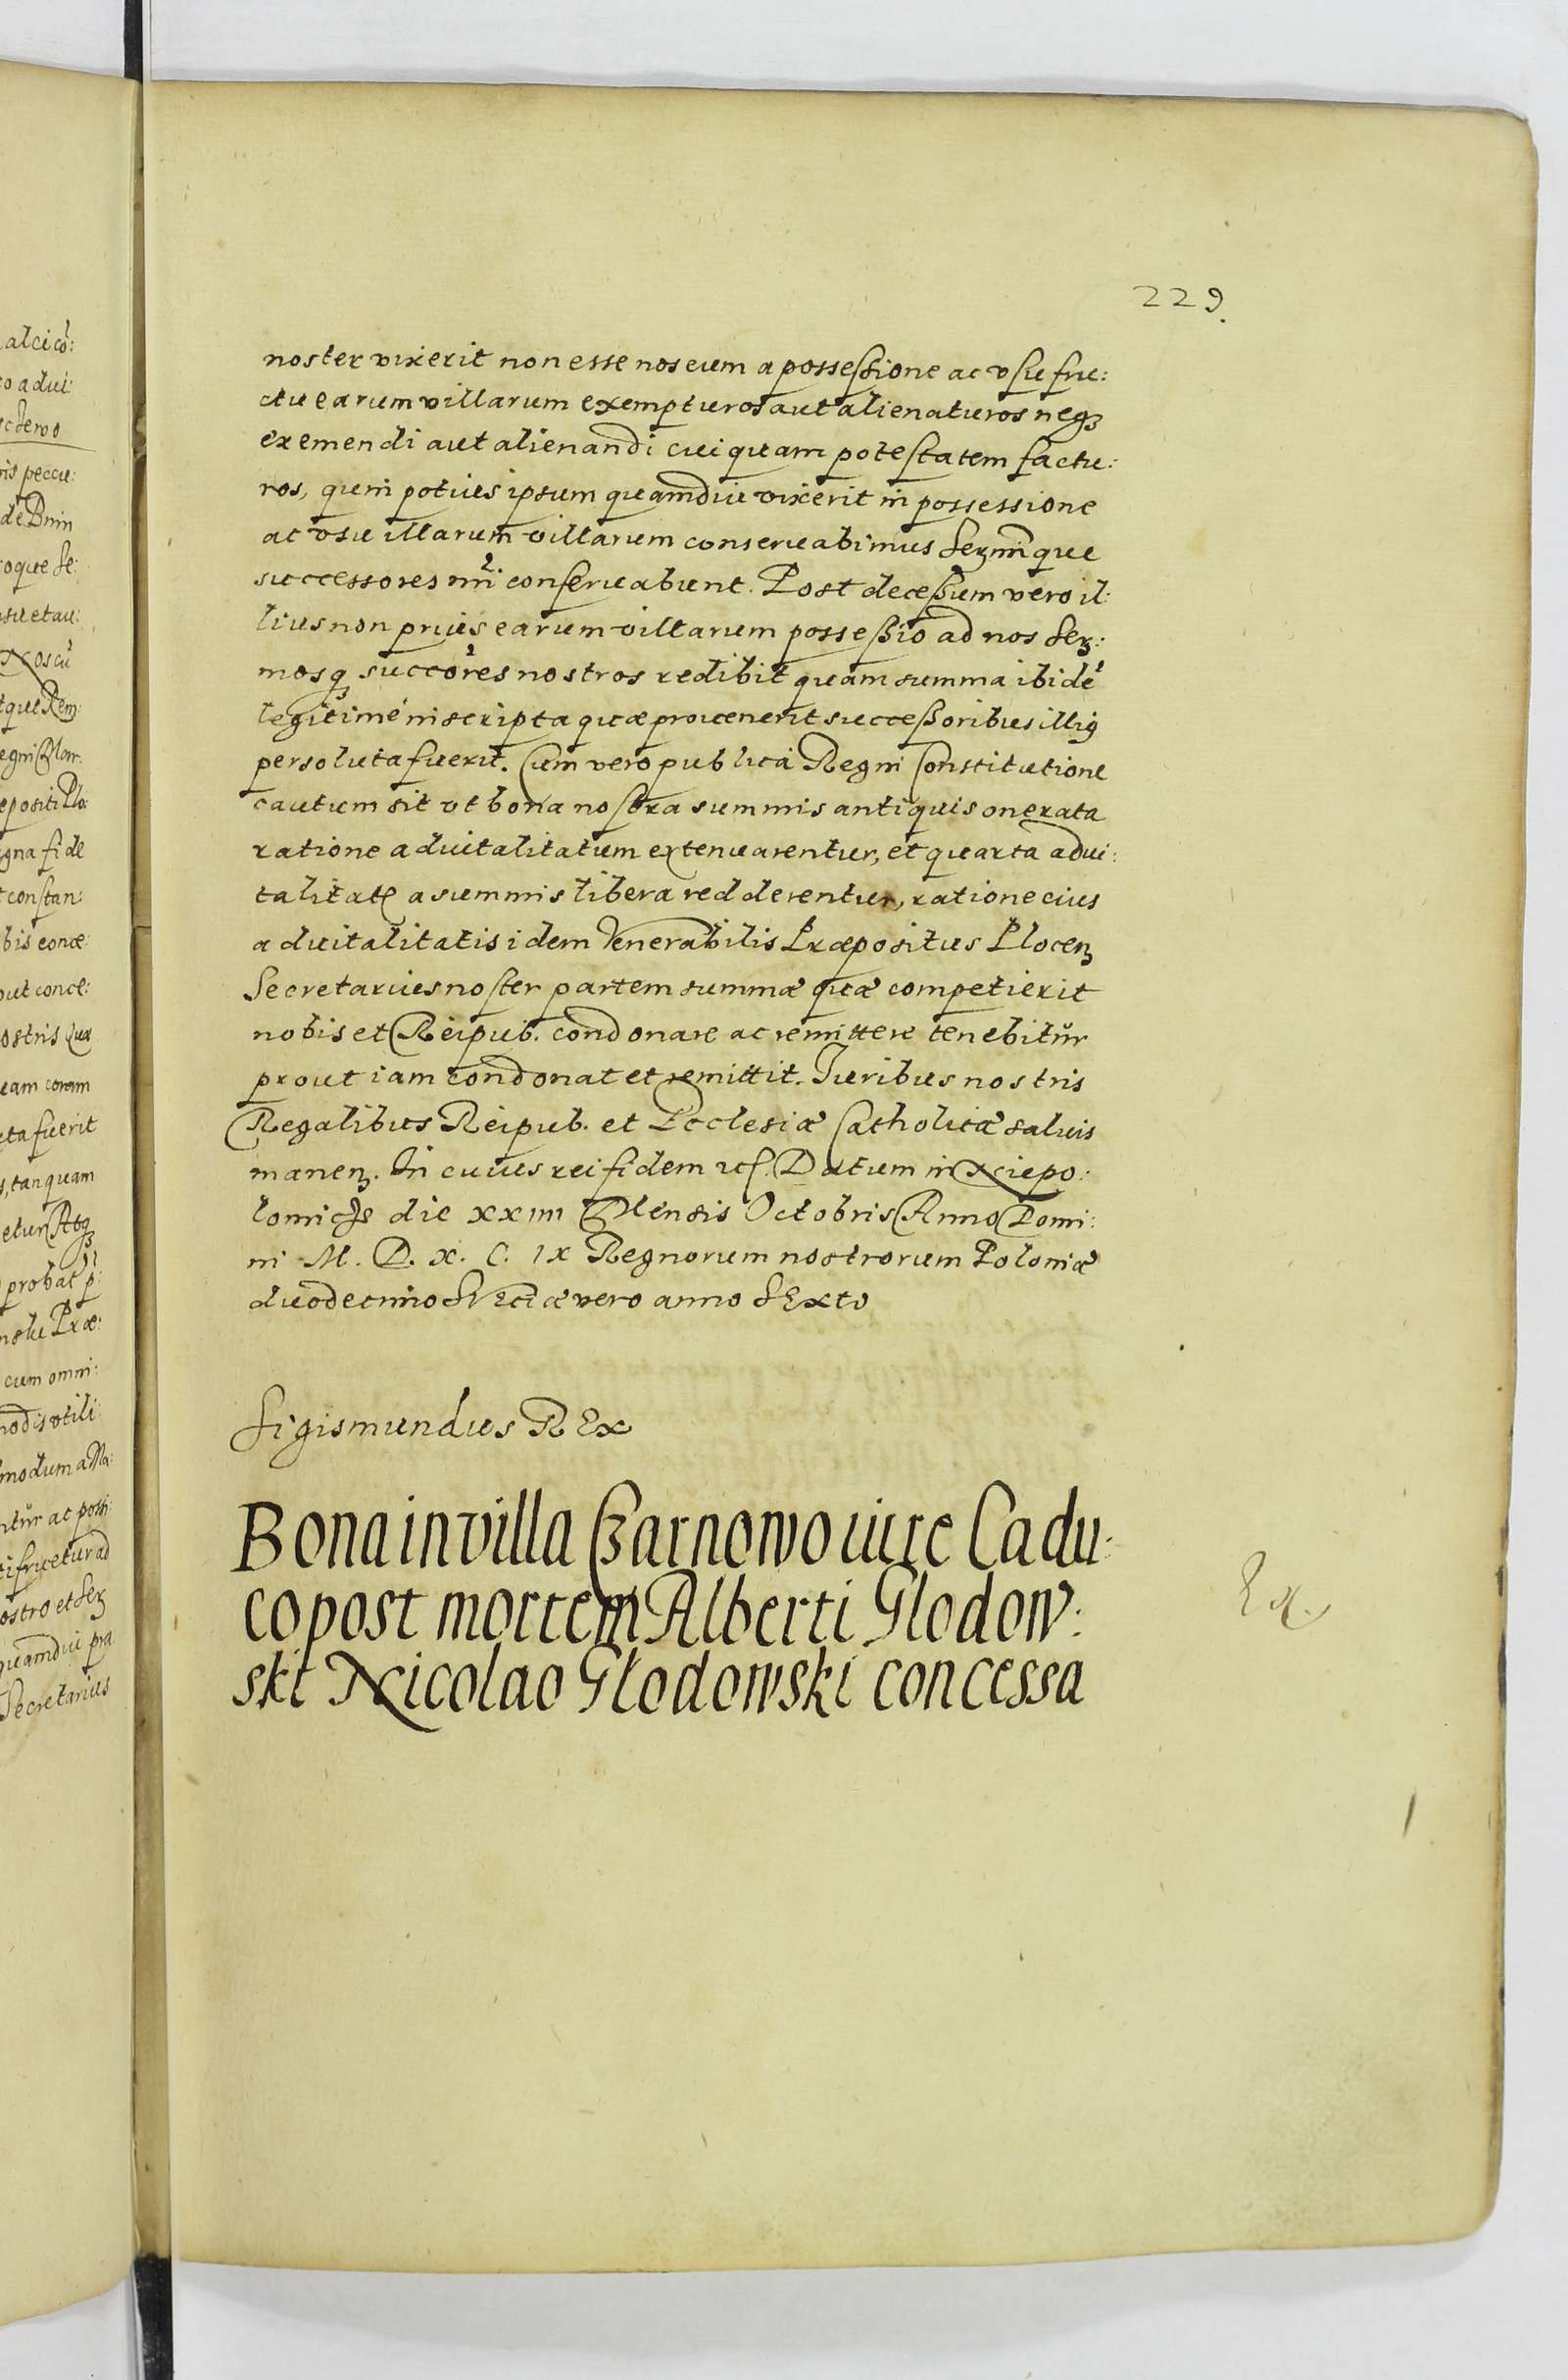 229.
noster vixerit non esse nos eum a possessione ac usufru:
ctu earum villarum exempturos aut alienaturos neqȝ
exemendi aut alienandi cuiquam potestatem factu:
ros, quin potius ipsum quamdiu vixerit in possessione
ac usu illarum villarum conservabimus Serꝫmique
successores nri conservabunt. Post decessum vero il:
lius non prius earum villarum possessio ad nos Serꝫ:
mosqȝ succores nostros redibit quam summa ibidē
legitimè inscripta quæ provenerit successoribus illiꝰ
persoluta fuerit. Cum vero publica Regni Constitutione
cautum sit ut bona nostra summis antiquis onerata
ratione advitalitatum extenuarentur, et quarta advi:
talitatꝭ a summis libera redderentur, ratione eius
advitalitatis idem Venerabilis Præpositus Plocenꝫ
Secretarius noster partem summæ quæ competierit
nobis et Reipub. condonare ac remittere tenebitŭr
prout iam condonat et remittit. Iuribus nostris
Regalibus Reipub. et Ecclesiæ Catholicæ salvis
manenꝫ. In cuius rei fidem etc. Datum in Niepo:
lomicꝭ die xxiiii Mensis Octobris Anno Domi:
ni M. D. X. C. IX Regnorum nostrorum Poloniæ
duodecimo Sveciæ vero anno sexto
Sigismundus Rex
Bona in villa Czarnowo iure Cadu:
co post mortem Alberti Glodow:
ski Nicolao Glodowski concessa
Ex.